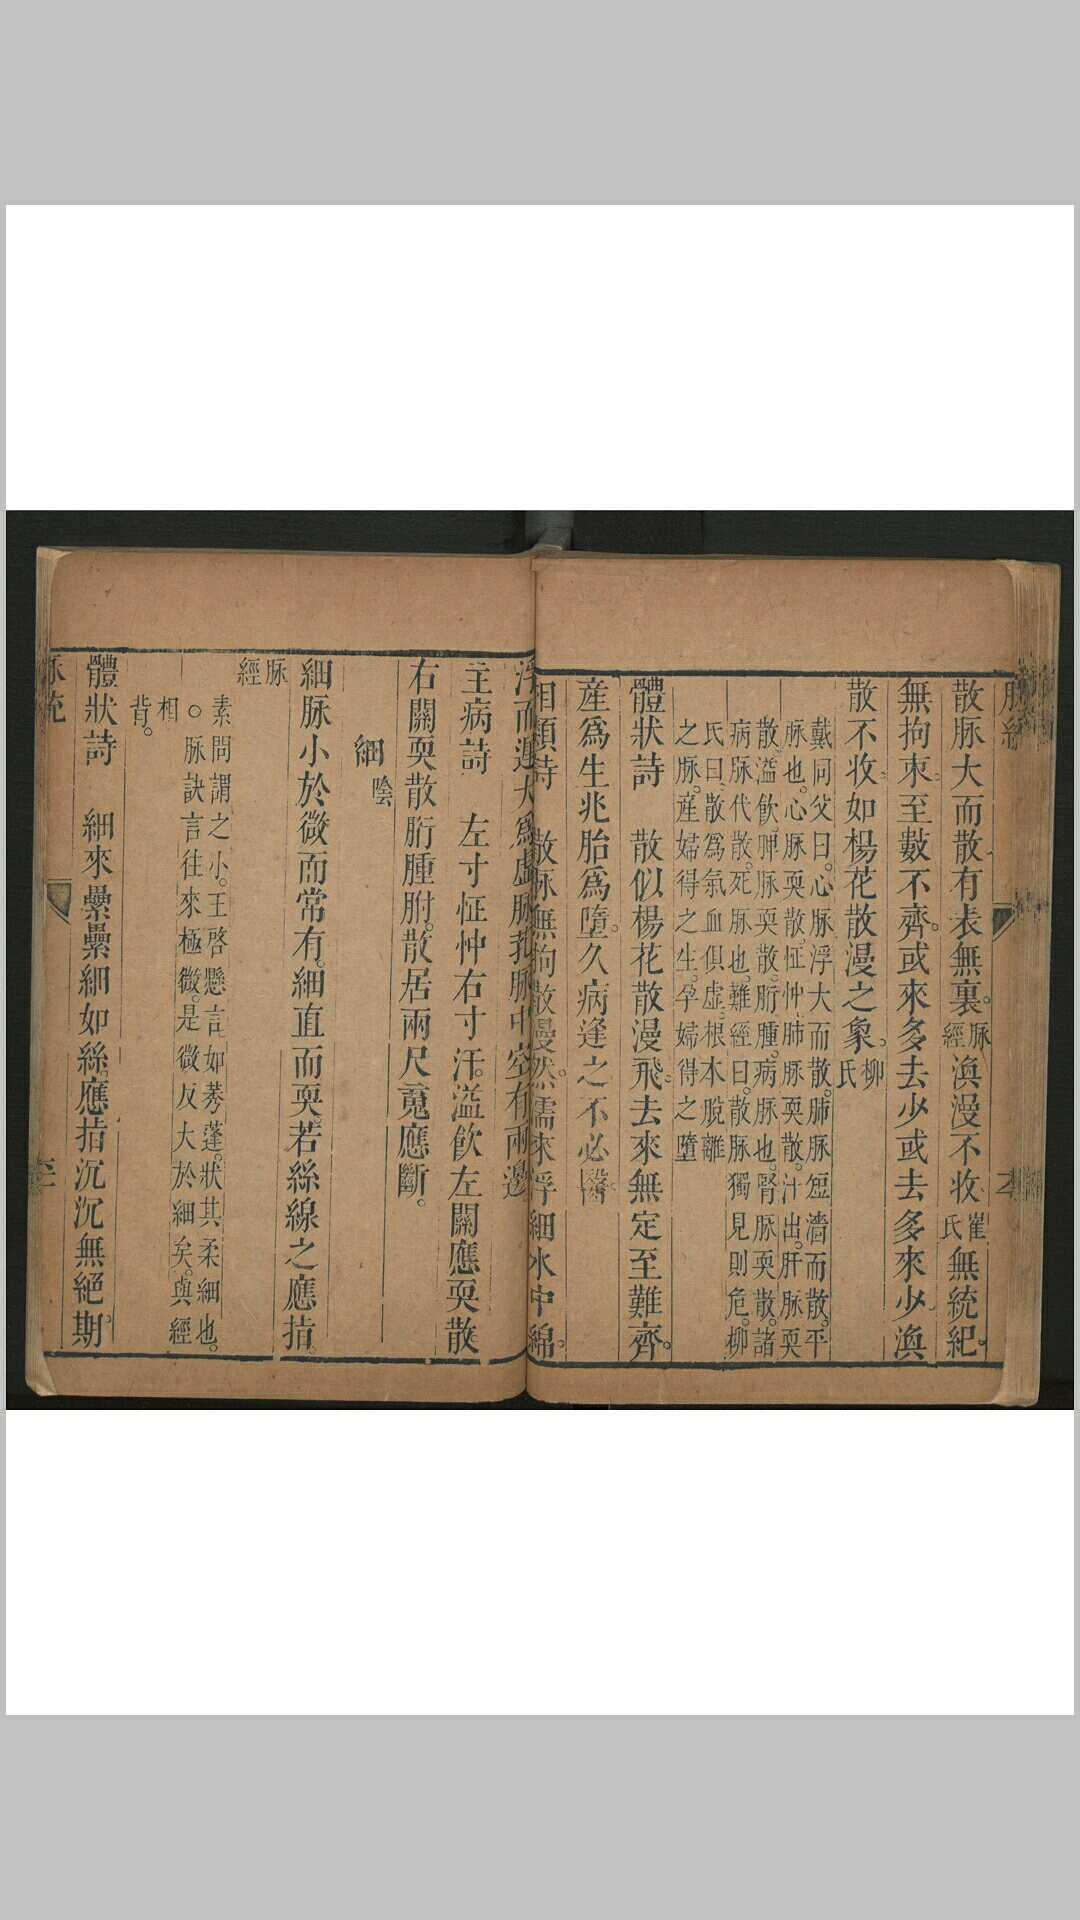 散脉大而散有表無裏。脉經渙漫不收崔氏無統紀。
無拘束。至數不齊。或來多去少或去多來少。渙
散不收。如楊花散漫之象。柳氏
戴同父曰。心脉浮大而散。肺脉短濇而散。平
脉也。心脉耎散。怔忡。肺脉耎散。汗出。肝脉耎
散。溢飲。脾脉耎散。胻腫。病脉也。腎脉耎散。諸
病脉代散。死脉也。難經曰。散脉獨見則危。柳
氏曰。散爲氣血俱虛。根本脫離
之脉。産婦得之生。孕婦得之墮
體狀詩　散似楊花散漫飛。去來無定至難齊。
産爲生兆胎爲墮。久病逢之不必醫
相類詩　散脉無拘散漫然。濡來浮細水中綿。
浮而遲大爲虛脉芤脉中空有兩邊
主病詩　左寸怔忡右寸汗。溢飲左關應耎散
右關耎散胻腫胕。散居兩尺䰟應斷。
細　陰
細脉小於微而常有。細直而耎。若絲線之應指。
脉經
素問謂之小。王啓𤣥言如莠蓬。狀其柔細也。
○脉訣言往來極微。是微反大於細矣。與經
相
背。
體狀詩　細來纍纍細如絲應指沉沉無絕期。